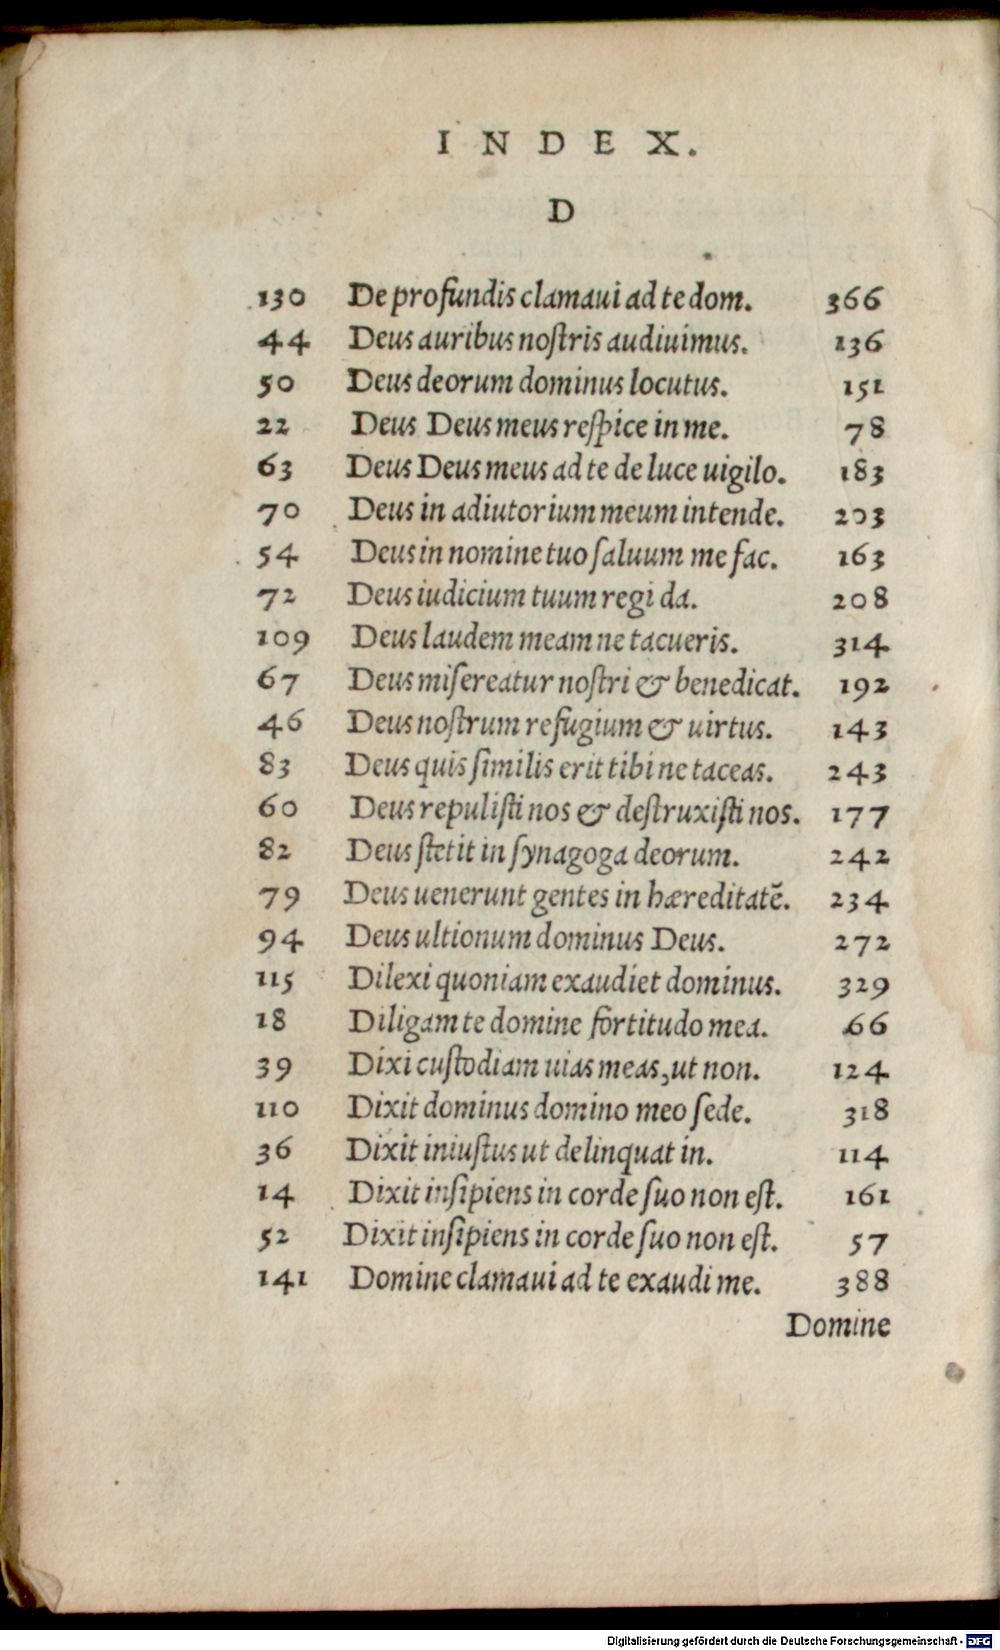 INDEX.
D
130 De profundis clamaui ad te dom. 366
44 Deus auribus noſtris audiuimus. 136
50 Deus deorum dominus locutus. 151
22 Deus Deus meus reſpice in me. 78
63 Deus Deus meus ad te de luce uigilo. 183
70 Deus in adiutorium meum intende. 203
54 Deus in nomine tuo ſaluum me fac. 163
72 Deus iudicium tuum regi da. 208
109 Deus laudem meam ne tacueris. 314
67 Deus miſereatur noſtri & benedicat. 192
46 Deus noſtrum refugium & uirtus. 143
83 Deus quis ſimilis erit tibi ne taceas. 243
60 Deus repuliſti nos & deſtruxiſti nos. 177
82 Deus ſtetit in ſynagoga deorum. 242
79 Deus uenerunt gentes in hæreditatē. 234
94 Deus ultionum dominus Deus. 272
115 Dilexi quoniam exaudiet dominus. 329
18 Diligam te domine fortitudo mea. 66
39 Dixi cuſtodiam uias meas, ut non. 124
110 Dixit dominus domino meo ſede. 318
36 Dixit iniuſtus ut delinquat in. 114
14 Dixit inſipiens in corde ſuo non eſt. 161
52 Dixit inſipiens in corde ſuo non eſt. 57
141 Domine clamaui ad te exaudi me. 388
Domine
Digitalisierung gefördert durch die Deutsche Forschungsgemeinschaft - DFG